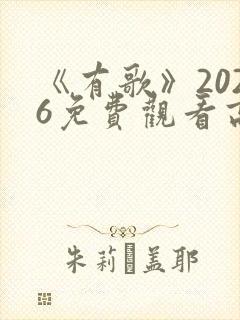 《有歌》202
6免費觀看高
朱莉 盖耶